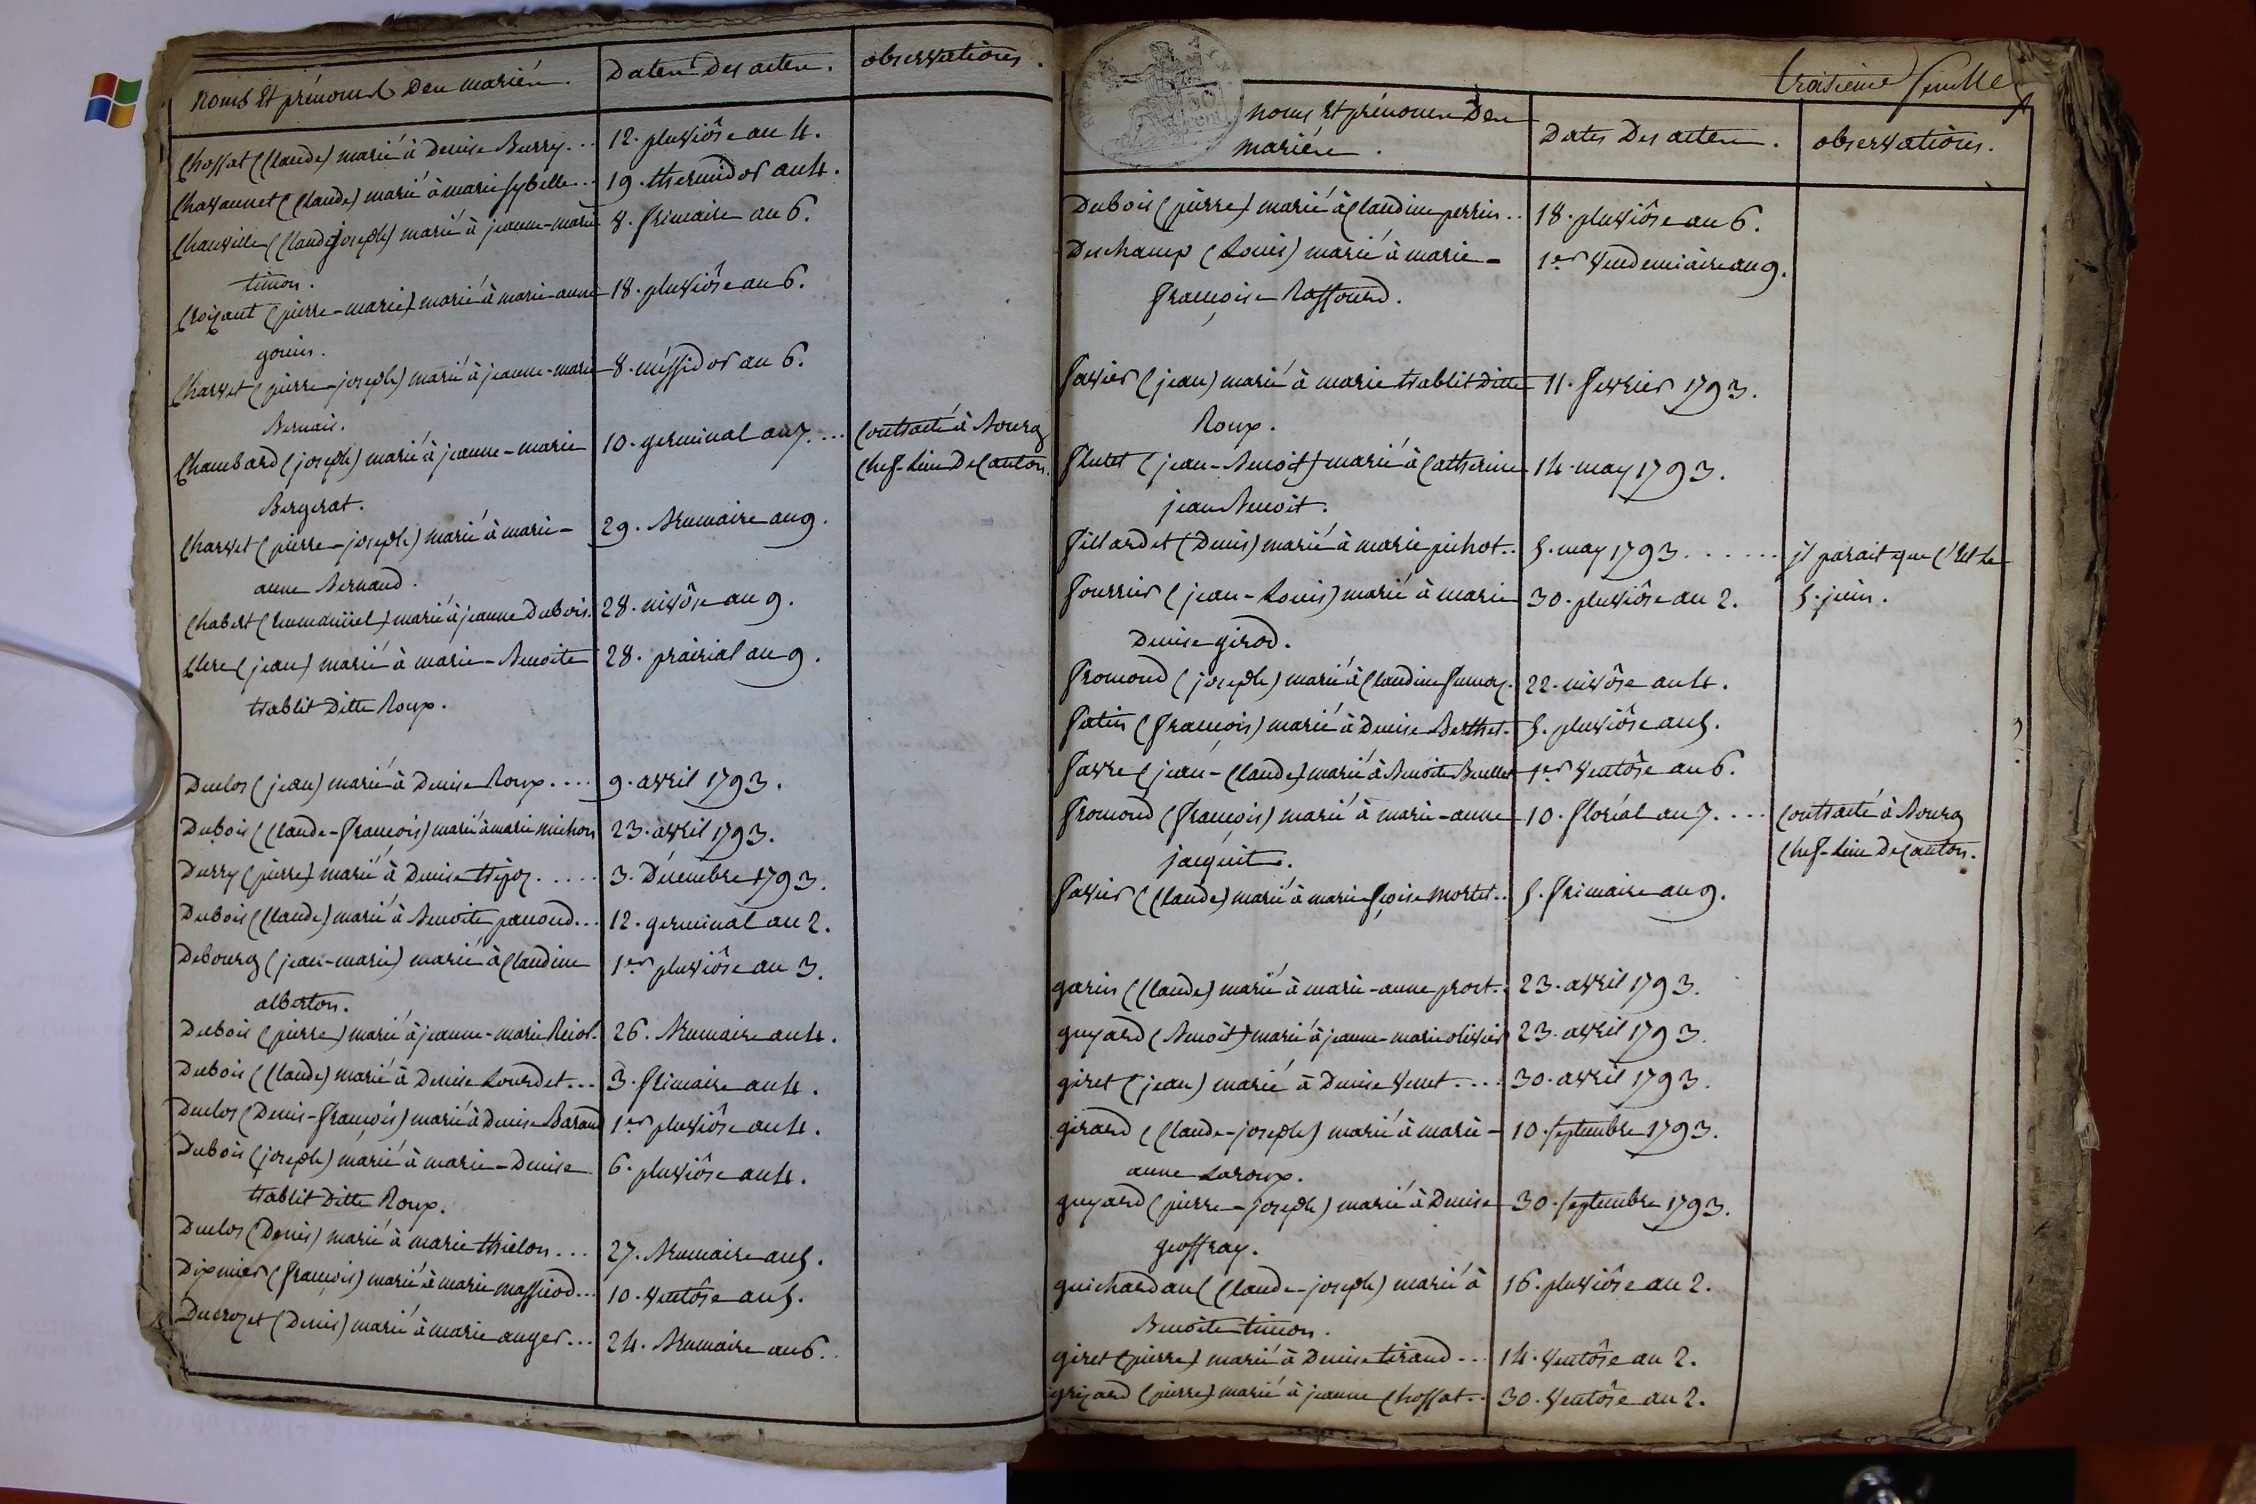 noms Et prénoms Des mariés. Dates Des actes. observations.
Chossat (Claude) marié à Denise Burry... 12. pluviôse an 4.
Chavannet (Claude) marié à marie sybelle... 19. thermidor an 4.
Chanville (Claude joseph) marié à jeanne-marie 8. frimaire an 6.
timon.
Croisant (pierre-marie) marié à marie-anne 18. pluviôse an 6.
gonin.
Charvet (pierre-joseph) marié à jeanne-marie 8. méssidor an 6.
Bernais.
Chambard (joseph) marié à jeanne-marie 10. germinal an 7.... Contracté à Bourg
Chef-Lieu De Canton.
Bergerat.
Charvet (pierre-joseph) marié à marie- 29. Brumaire an 9.
anne Bernaud.
Chabert (Emmanuel) marié à jeanne Dubois. 28. nivôse an 9.
Clere (jean) marié à marie-Benoite 28. prairial an 9.
trablit Ditte Roup.
Duclos (jean) marié à Denise Roup.... 9. avril 1793.
Dubois (Claude-françois) marié à marie michon 23. avril 1793.
Durry (pierre) marié à Denise 3. Décembre 1793.
Dubois (Claude) marié à Benoite panoud... 12. germinal an 2.
Debourg (jean-marie) marié à Claudine 1er pluviôse an 3.
alberton.
Dubois (pierre) marié à jeanne-marie Reiol. 26. Brumaire an 4.
Dubois (Claude) marié à Denise Lourdet... 3. frimaire an 4.
Duclos (Denis-françois) marié à Denise Baraud 1er pluviôse an 4.
Dubois (joseph) marié à marie-Denise 6. pluviôse an 4.
trablit Ditte Roup.
Duclos (Denis) marié à marie thielon... 27. Brumaire an 5.
Dixmier (françois) marié à marie massiod... 10. Ventôse an 5.
Ducrozet (Denis) marié à marie anger... 24. Brumaire an 6.
troisieme feuille
noms Et prénoms Des
mariés. Dates Des actes. observations.
Dubois (pierre) marié à Claudine perrin.. 18. pluviôse an 6.
Duchamp (Louis) marié à marie- 1er Vendemiaire an 9.
françoise Raffourd.
favier (jean) marié à marie trablit Ditte 11. fevrier 1793.
Roup.
flutet (jean-Benoit) marié à Catherine 14. may 1793.
jean Benoit.
fillardet (Denis) marié à marie pichot.. 5. may 1793...... il parait que C'Est le
5. juin.
fourrier (jean-Louis) marié à marie 30. pluviôse an 2.
Denise girod.
fromond (joseph) marié à Claudine 22. nivôse an 4.
fatin (françois) marié à Denise Berthet. 5. pluviôse an 5.
favre (jean-Claude) marié à Benoite Brullet 1er Ventôse an 6.
fromond (françois) marié à marie-anne 10. floréal an 7.... Contracté à Bourg
Chef-Lieu De Canton.
jacquet.
favier (Claude) marié à marie fçoise mortet.. 5. frimaire an 9.
garin (Claude) marié à marie-anne prost.. 23. avril 1793.
guyard (Benoit) marié à jeanne-marie olivier 23. avril 1793.
giret (jean) marié à Denise Venet.... 30. avril 1793.
girard (Claude-joseph) marié à marie- 10. septembre 1793.
anne Laroup.
guyard (pierre-joseph) marié à Denise 30. septembre 1793.
geoffray.
guichardan (Claude-joseph) marié à 16. pluviôse an 2.
Benoite timon.
giret (pierre) marié à Denise tiraud... 14. Ventôse an 2.
grizard (pierre) marié à jeanne Chossat.. 30. Ventôse an 2.